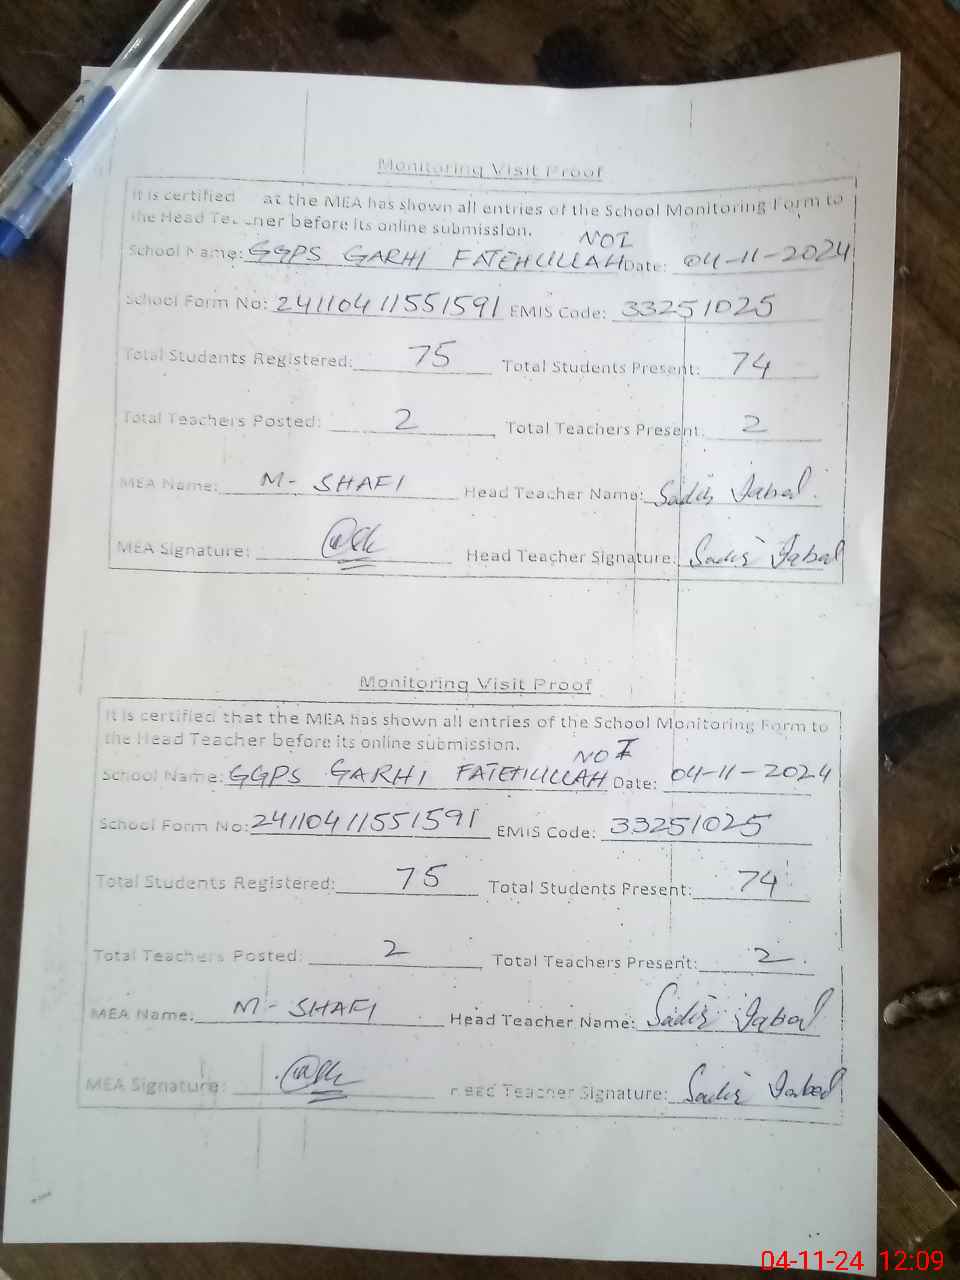 Monitoring Visit Proof
It is certified at the MEA has shown all entries of the School Monitoring Form to
the Head Teacher before its online submission.
NO I
School Name: GGPS GARHI FATEHULLAH Date: 04-11-2024
School Form No: 24110411551591 EMIS Code: 33251025
Total Students Registered: 75 Total Students Present: 74
Total Teachers Posted: 2 Total Teachers Present: 2
MEA Name: M- SHAFI Head Teacher Name: Sadir Iqbal.
MEA Signature: Head Teacher Signature: Sadir Iqbal
Monitoring Visit Proof
It is certified that the MEA has shown all entries of the School Monitoring Form to
the Head Teacher before its online submission.
NO I
School Name: GGPS GARHI FATEHULLAH Date: 04-11-2024
School Form No: 24110411551591 EMIS Code: 33251025
Total Students Registered: 75 Total Students Present: 74
Total Teachers Posted: 2 Total Teachers Present: 2.
MEA Name: M- SHAFI Head Teacher Name: Sadir Iqbal
MEA Signature: Head Teacher Signature: Sadir Iqbal
04-11-24 12:09